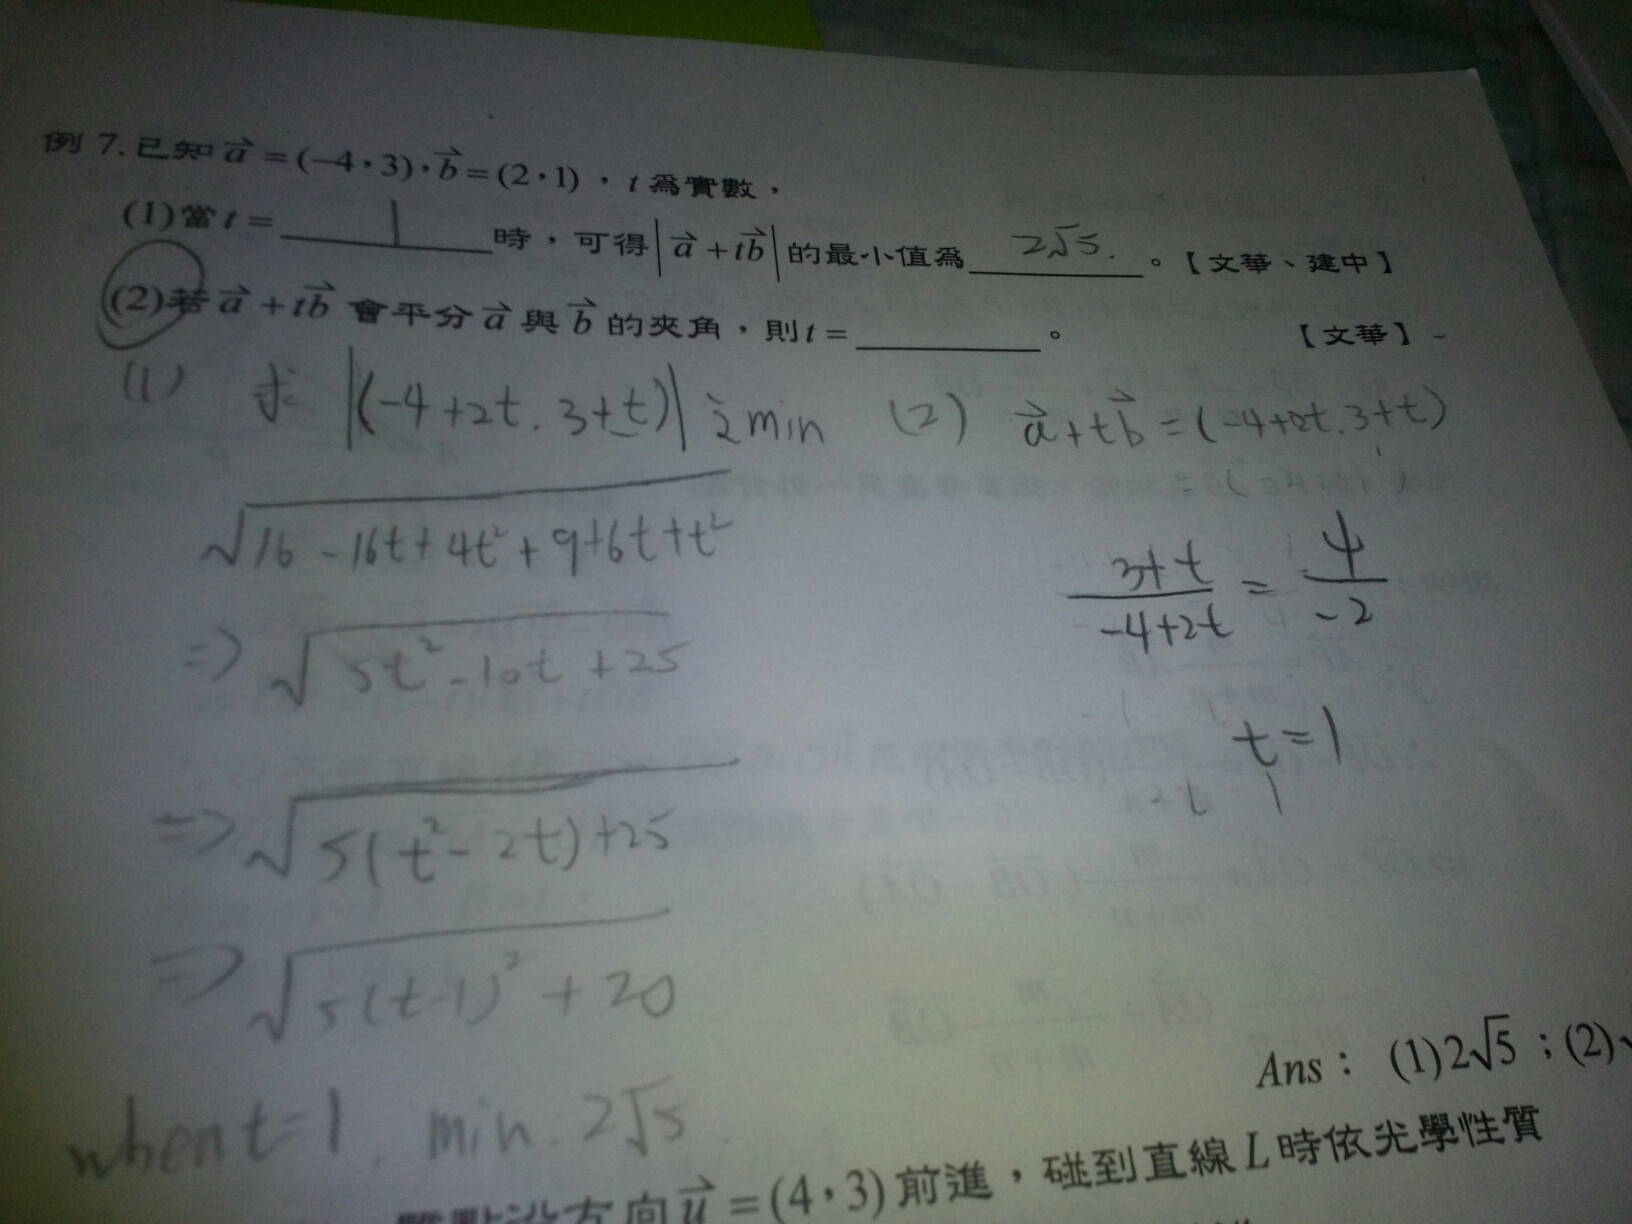 例 7. 已知 a⃗ = (−4，3)，b⃗ = (2，1)，t 為實數，
(1)當 t = 1 時，可得 |a⃗ + tb⃗| 的最小值為 2√5. 。【文華、建中】
(2)若 a⃗ + tb⃗ 會平分 a⃗ 與 b⃗ 的夾角，則 t = 。【文華】
(1) 求 |(-4+2t, 3+t)| 之 min
√(16-16t+4t²+9+6t+t²)
⇒ √(5t²-10t+25)
⇒ √(5(t²-2t)+25)
⇒ √(5(t-1)²+20)
when t=1, min. 2√5.
(2) a⃗+tb⃗ = (-4+2t, 3+t)
(3+t)/(-4+2t) = 4/-2
t=1
Ans： (1)2√5；(2)√
方向 u⃗ = (4，3) 前進，碰到直線 L 時依光學性質